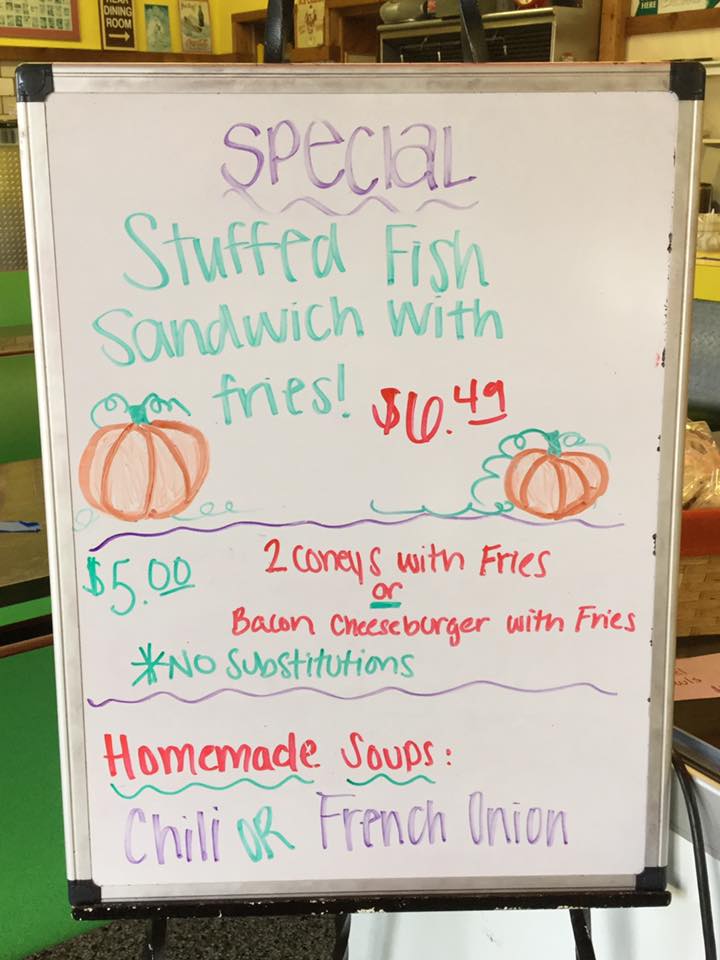 REAR
DINING
ROOM
HERE
SPECIAL
Stuffed Fish
Sandwich with
fries! $6.49
$5.00 2 Coneys with Fries
or
Bacon Cheeseburger with Fries
*No Substitutions
Homemade Soups:
Chili OR French Onion